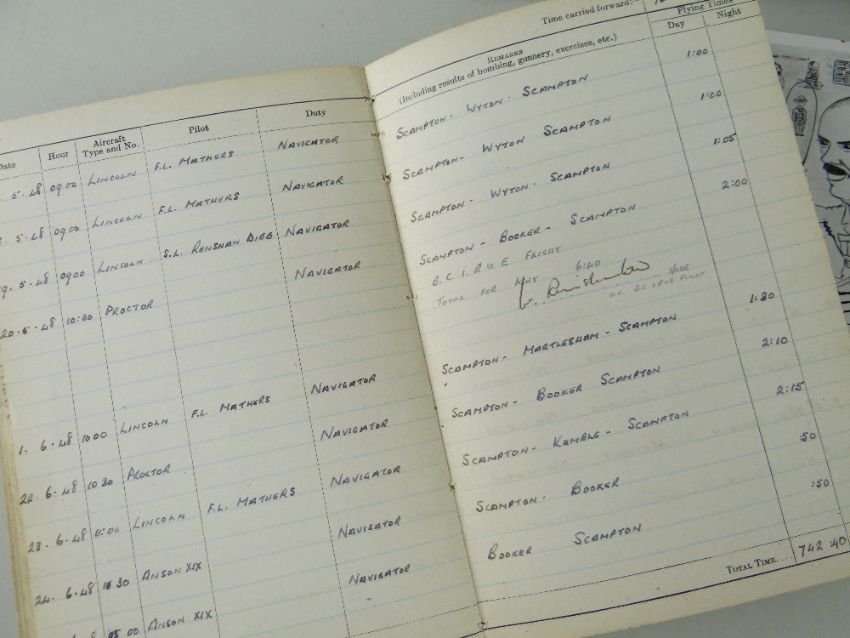 Time carried forward:—
REMARKS
(Including results of bombing, gunnery, exercises, etc.)
Flying Times
Day Night
Date Hour Aircraft Type and No. Pilot Duty
5.48 0900 LINCOLN F.L. MATHERS NAVIGATOR SCAMPTON- WYTON- SCAMPTON 1:00
5.48 0900 LINCOLN F.L. MATHERS NAVIGATOR SCAMPTON- WYTON SCAMPTON 1:00
9.5.48 0900 LINCOLN S.L. RENSHAW DIBB NAVIGATOR SCAMPTON- WYTON- SCAMPTON 1:05
20.5.48 10:30 PROCTOR NAVIGATOR SCAMPTON- BOOKER- SCAMPTON 2:00
B.C.I.R & E FLIGHT
TOTAL FOR MAY 6:40
1.6.48 1000 LINCOLN F.L. MATHERS NAVIGATOR SCAMPTON- MARTLESHAM- SCAMPTON 1:30
22.6.48 10 30 PROCTOR NAVIGATOR SCAMPTON- BOOKER SCAMPTON 2:10
23.6.48 11:00 LINCOLN F.L. MATHERS NAVIGATOR SCAMPTON- KEMBLE- SCAMPTON 2:15
24.6.48 16 30 ANSON XIX NAVIGATOR SCAMPTON- BOOKER :50
ANSON XIX NAVIGATOR BOOKER SCAMPTON :50
TOTAL TIME... 742:40